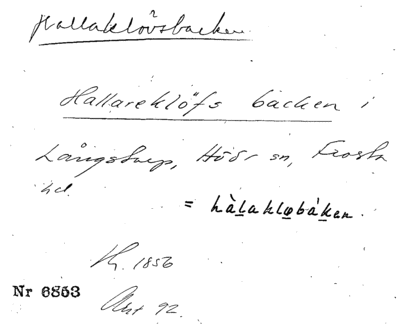 Hallaklövsbacken
Hallareklöfs backen i
Långstorp, Höör sn, Frosta
hd.
= hàlakløbákan.
1856
Nr 6853
Akt 92.